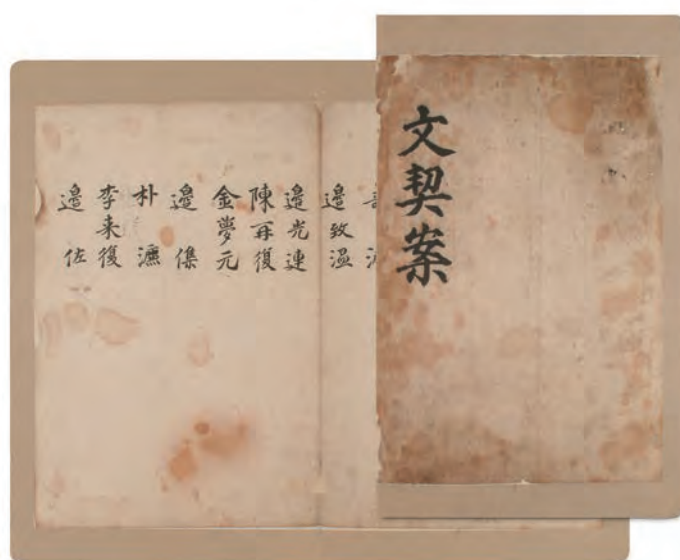 文契案
邊致温
邊光連
陳再復
金夢元
邊
朴
李来復
邊佐